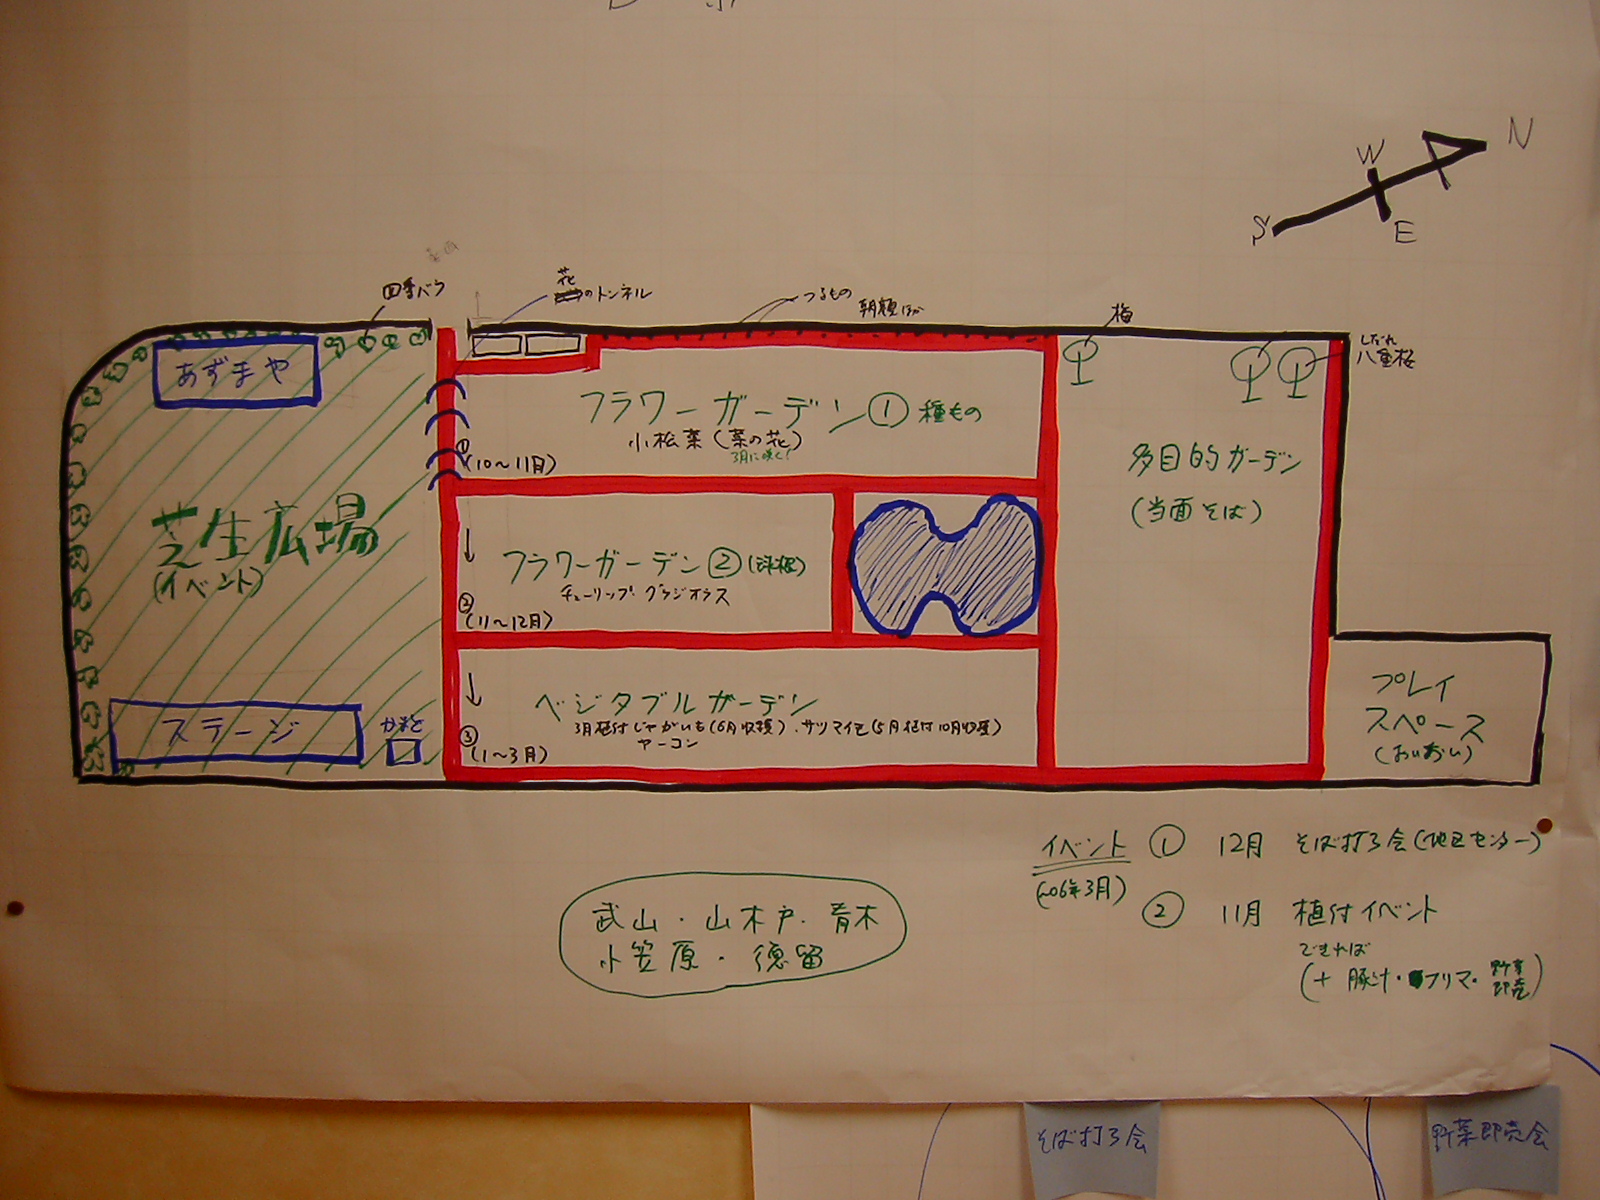 N
W
S
E
四季バラ
花
のトンネル
つるもの
朝顔ほか
梅
しだれ
八重桜
あずまや
フラワーガーデン① 種もの
小松菜(菜の花)
3月に咲く!
①
(10〜11月)
多目的ガーデン
(当面そば)
芝生広場
(イベント)
フラワーガーデン②(球根)
チューリップ・グラジオラス
②
(11〜12月)
ベジタブルガーデン
3月植付じゃがいも(6月収穫)、サツマイモ(5月植付10月収穫)
ヤーコン
③
(1〜3月)
ステージ
かまど
プレイ
スペース
(おいおい)
イベント ① 12月 そば打ち会(地区センター)
(〜06年3月)
② 11月 植付イベント
できれば
(+豚汁・フリマ・野菜即売)
武山・山木戸・青木
小笠原・徳留
そば打ち会
野菜即売会